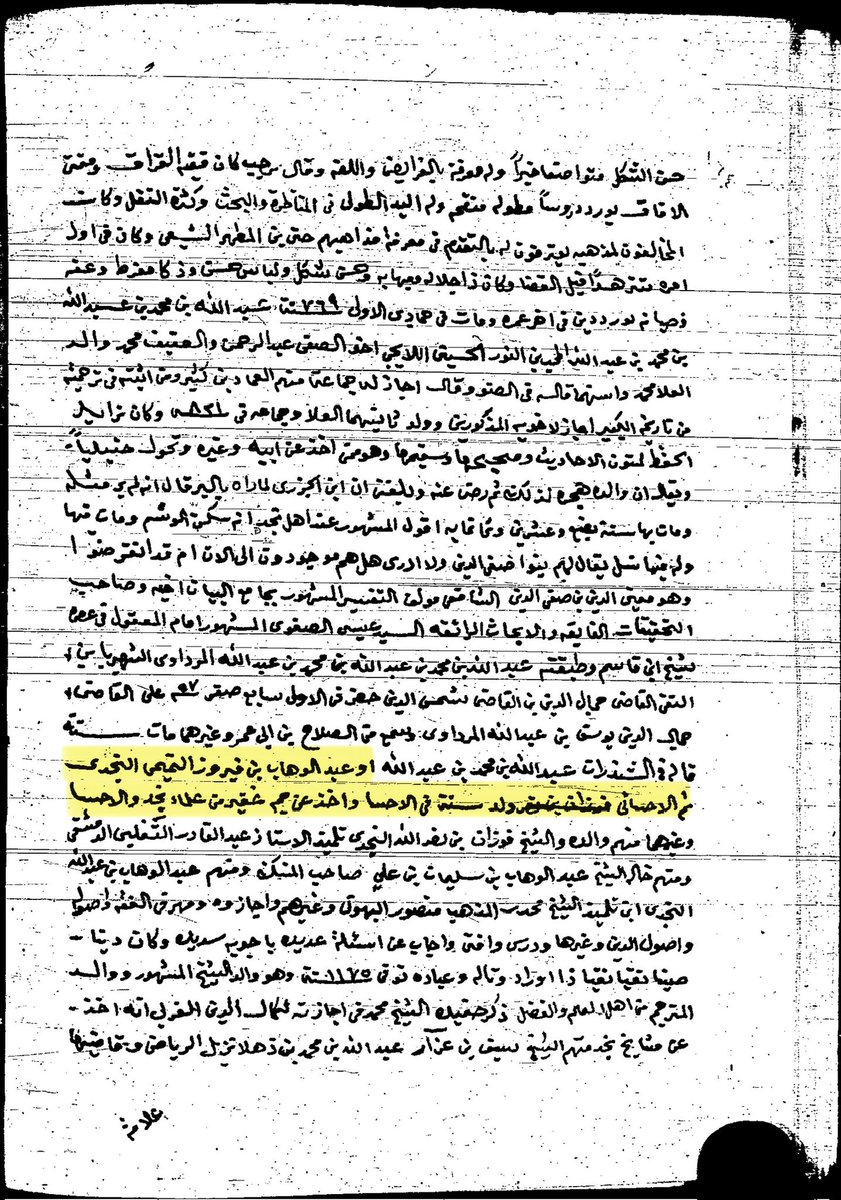 حسن الشكل متواضعا خيرا وله معرفة بالفرايض واللغه وقال بن رجب كان فقيه العراق ومفتي
الافاق يورد دروسا مطوله منقحه وله اليد الطولى في المناظرة والبحث وكثرة النقل وكان
المخالفون لمذهبه يعترفون له بالتقدم في معرفة مذاهبهم حتى بن المطهر الشيعي وكان في اول
امره متزهدا قبل القضا وكان ذا جلاله ومهابه وحسن شكل ولباس حسن وذكا مفرط وعفه
وصيانه في اخر عمره ومات في جمادى الاولى سنة ٧٦٩ عبد الله بن محمد بن عبد الله
بن محمد بن عبد الله بن النور الحسيني اللايجي اخو الصفي عبد الرحمن والعفيف محمد والد
العلا محمد قاله في الضو وقال اجاز له جماعة منهم العماد بن كثير ومن اثبته في ترجمته
من تاريخ الكبير اجاز لاخويه المذكورين وولد ثانيهما العلا وجماعه في وكان
الحفظ لمتون الاحاديث وصحيحها وسقيمها وهو ممن اخذ عن ابيه وغيره وتحول حنبليا
ويقال ان والده هجره لذلك ثم رضي عنه وبلغني ان ابن الجزري لما راه قال انه لم ير مثله
ومات بها سنة بضع وعشرين وثمانمايه اقول المشهور عند اهل نجد انه سكن الوشم ومات فيها
وله فيها نسل يقال لهم بنوا صفي الدين ولا ادري هل هم موجودون الى الان ام قد انقرضوا
وهو معين الدين بن صفي الدين الشافعي مولف التفسير المشهور بجامع البيان اخيه وصاحب
التحقيقات الفايقه والابحاث الرائقه السيد عيسى الصفوي المشهور امام المعقول في عصره
شيخ ابن قاسم وطبقته عبد الله بن محمد بن عبد الله بن محمد بن عبد الله المرداوي الشهير بابن
التقي القاضي جمال الدين بن القاضي شمس الدين حضر في الاول سابع صفر على القاضي
جمال الدين يوسف بن عبد الله المرداوي وسمع من الصلاح بن ابي عمر وغيرهما مات سنة
قاله في الشذرات عبد الله بن محمد بن عبد الله او عبد الوهاب بن فيروز التميمي النجدي
ثم الاحسائي ولد سنة في الاحسا واخذ عن جم غفير من علماء نجد والاحسا
وغيرهما منهم والده والشيخ فوزان بن نصر الله النجدي تلميذ الاستاذ عبد القادر التغلبي الدمشقي
ومنهم خاله الشيخ عبد الوهاب بن سليمان بن علي صاحب المنسك ومنهم عبد الوهاب بن عبد الله
النجدي ابن تلميذ الشيخ محرر المذهب منصور البهوتي وغيرهم واجازوه ومهر في الفقه واصوله
واصول الدين وغيرها ودرس وافتى واجاب عن اسئلة عديده باجوبه سديده وكان دينا
صينا تقيا نقيا ذا اوراد وتاله وعباده توفي سنة ١١٧٥ وهو والد الشيخ المشهور ووالد
المترجم من اهل العلم والفضل ذكر حفيده الشيخ محمد في اجازته لكمال الدين الغزي انه اخذ
عن مشايخ نجد منهم الشيخ سيف بن عزاز عبد الله بن محمد بن ذهلان نزيل الرياض وقاضيها
علامة